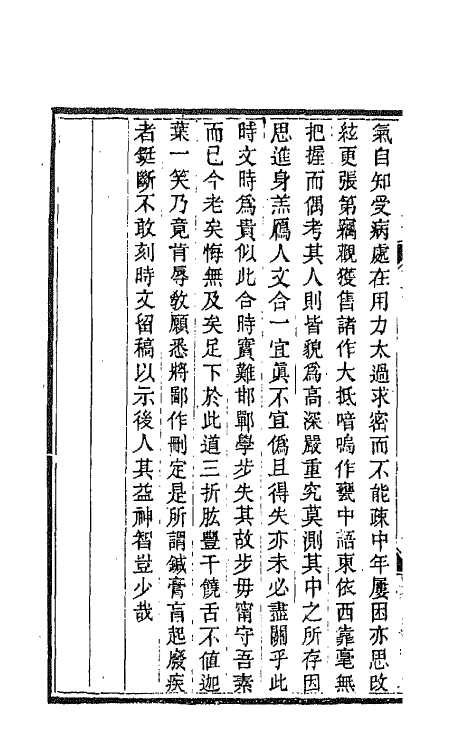 氣自知受病處在用力太過求密而不能疎中年屢困亦思改
絃更張第竊觀獲售諸作大抵喑嗚作甕中語東依西靠毫無
把握而偶考其人則皆貌為高深嚴重究莫測其中之所存因
思進身羔鴈人文合一宜眞不宜僞且得失亦未必盡關乎此
時文時為貴似此合時實難邯鄲學步失其故步毋甯守吾素
而已今老矣悔無及矣足下於此道三折肱豐干饒舌不値迦
葉一笑乃竟肯辱敎願悉將鄙作刪定是所謂鍼膏肓起廢疾
者鋌斷不敢刻時文留稿以示後人其益神智豈少哉